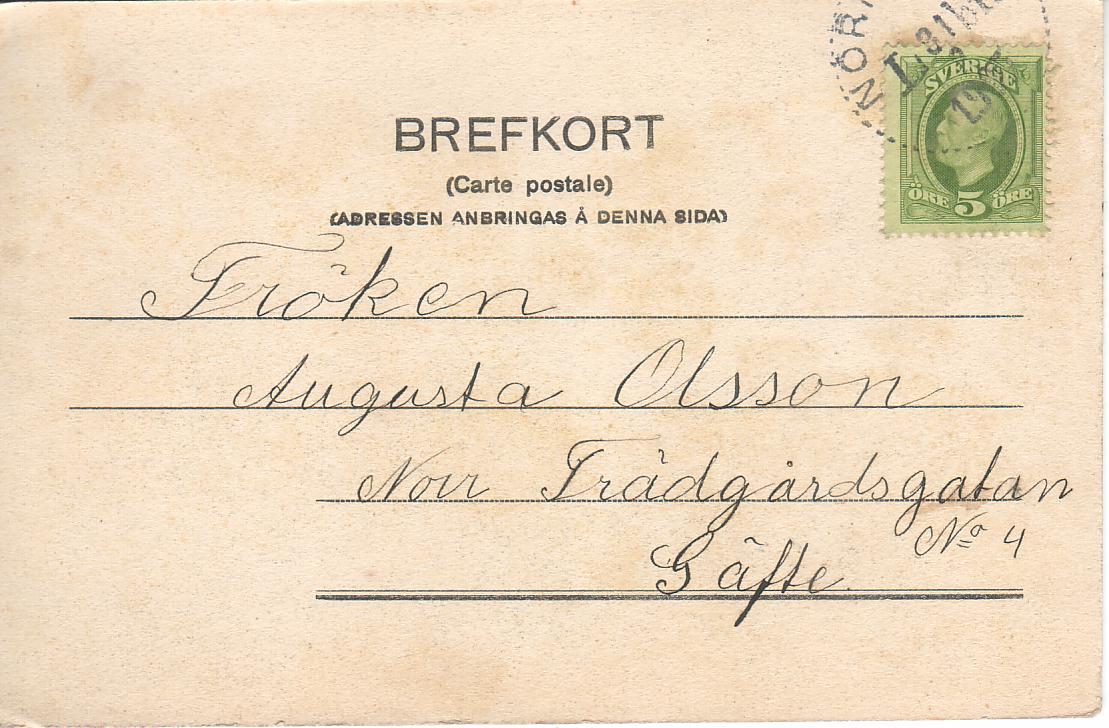 BREFKORT
(Carte postale)
(ADRESSEN ANBRINGAS Å DENNA SIDA)
SVERIGE
ÖRE 5 ÖRE
Fröken
Augusta Olsson
Norr Trädgårdsgatan
No 4
Gäfle